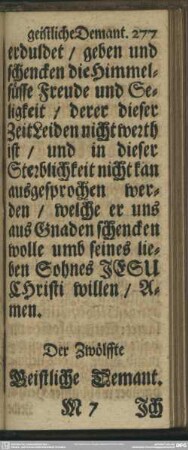 geistliche Demant. 277
erduldet / geben und
schencken die Himmel-
süsse Freude und Se-
ligkeit / derer dieser
Zeit Leiden nicht werth
ist / und in dieser
Sterblichkeit nicht kan
ausgesprochen wer-
den / welche er uns
aus Gnaden schencken
wolle umb seines lie-
ben Sohnes JESU
CHristi willen / A-
men.
Der Zwölffte
Geistliche Demant.
M 7 Ich